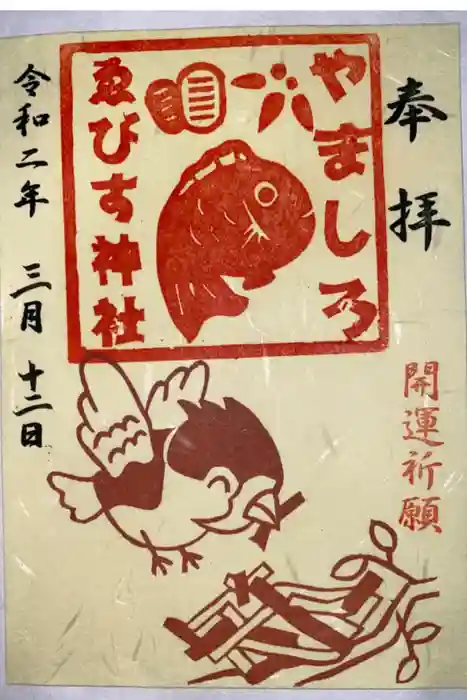 奉拝
開運祈願
やましろ
ゑびす神社
令和二年 三月 十二日